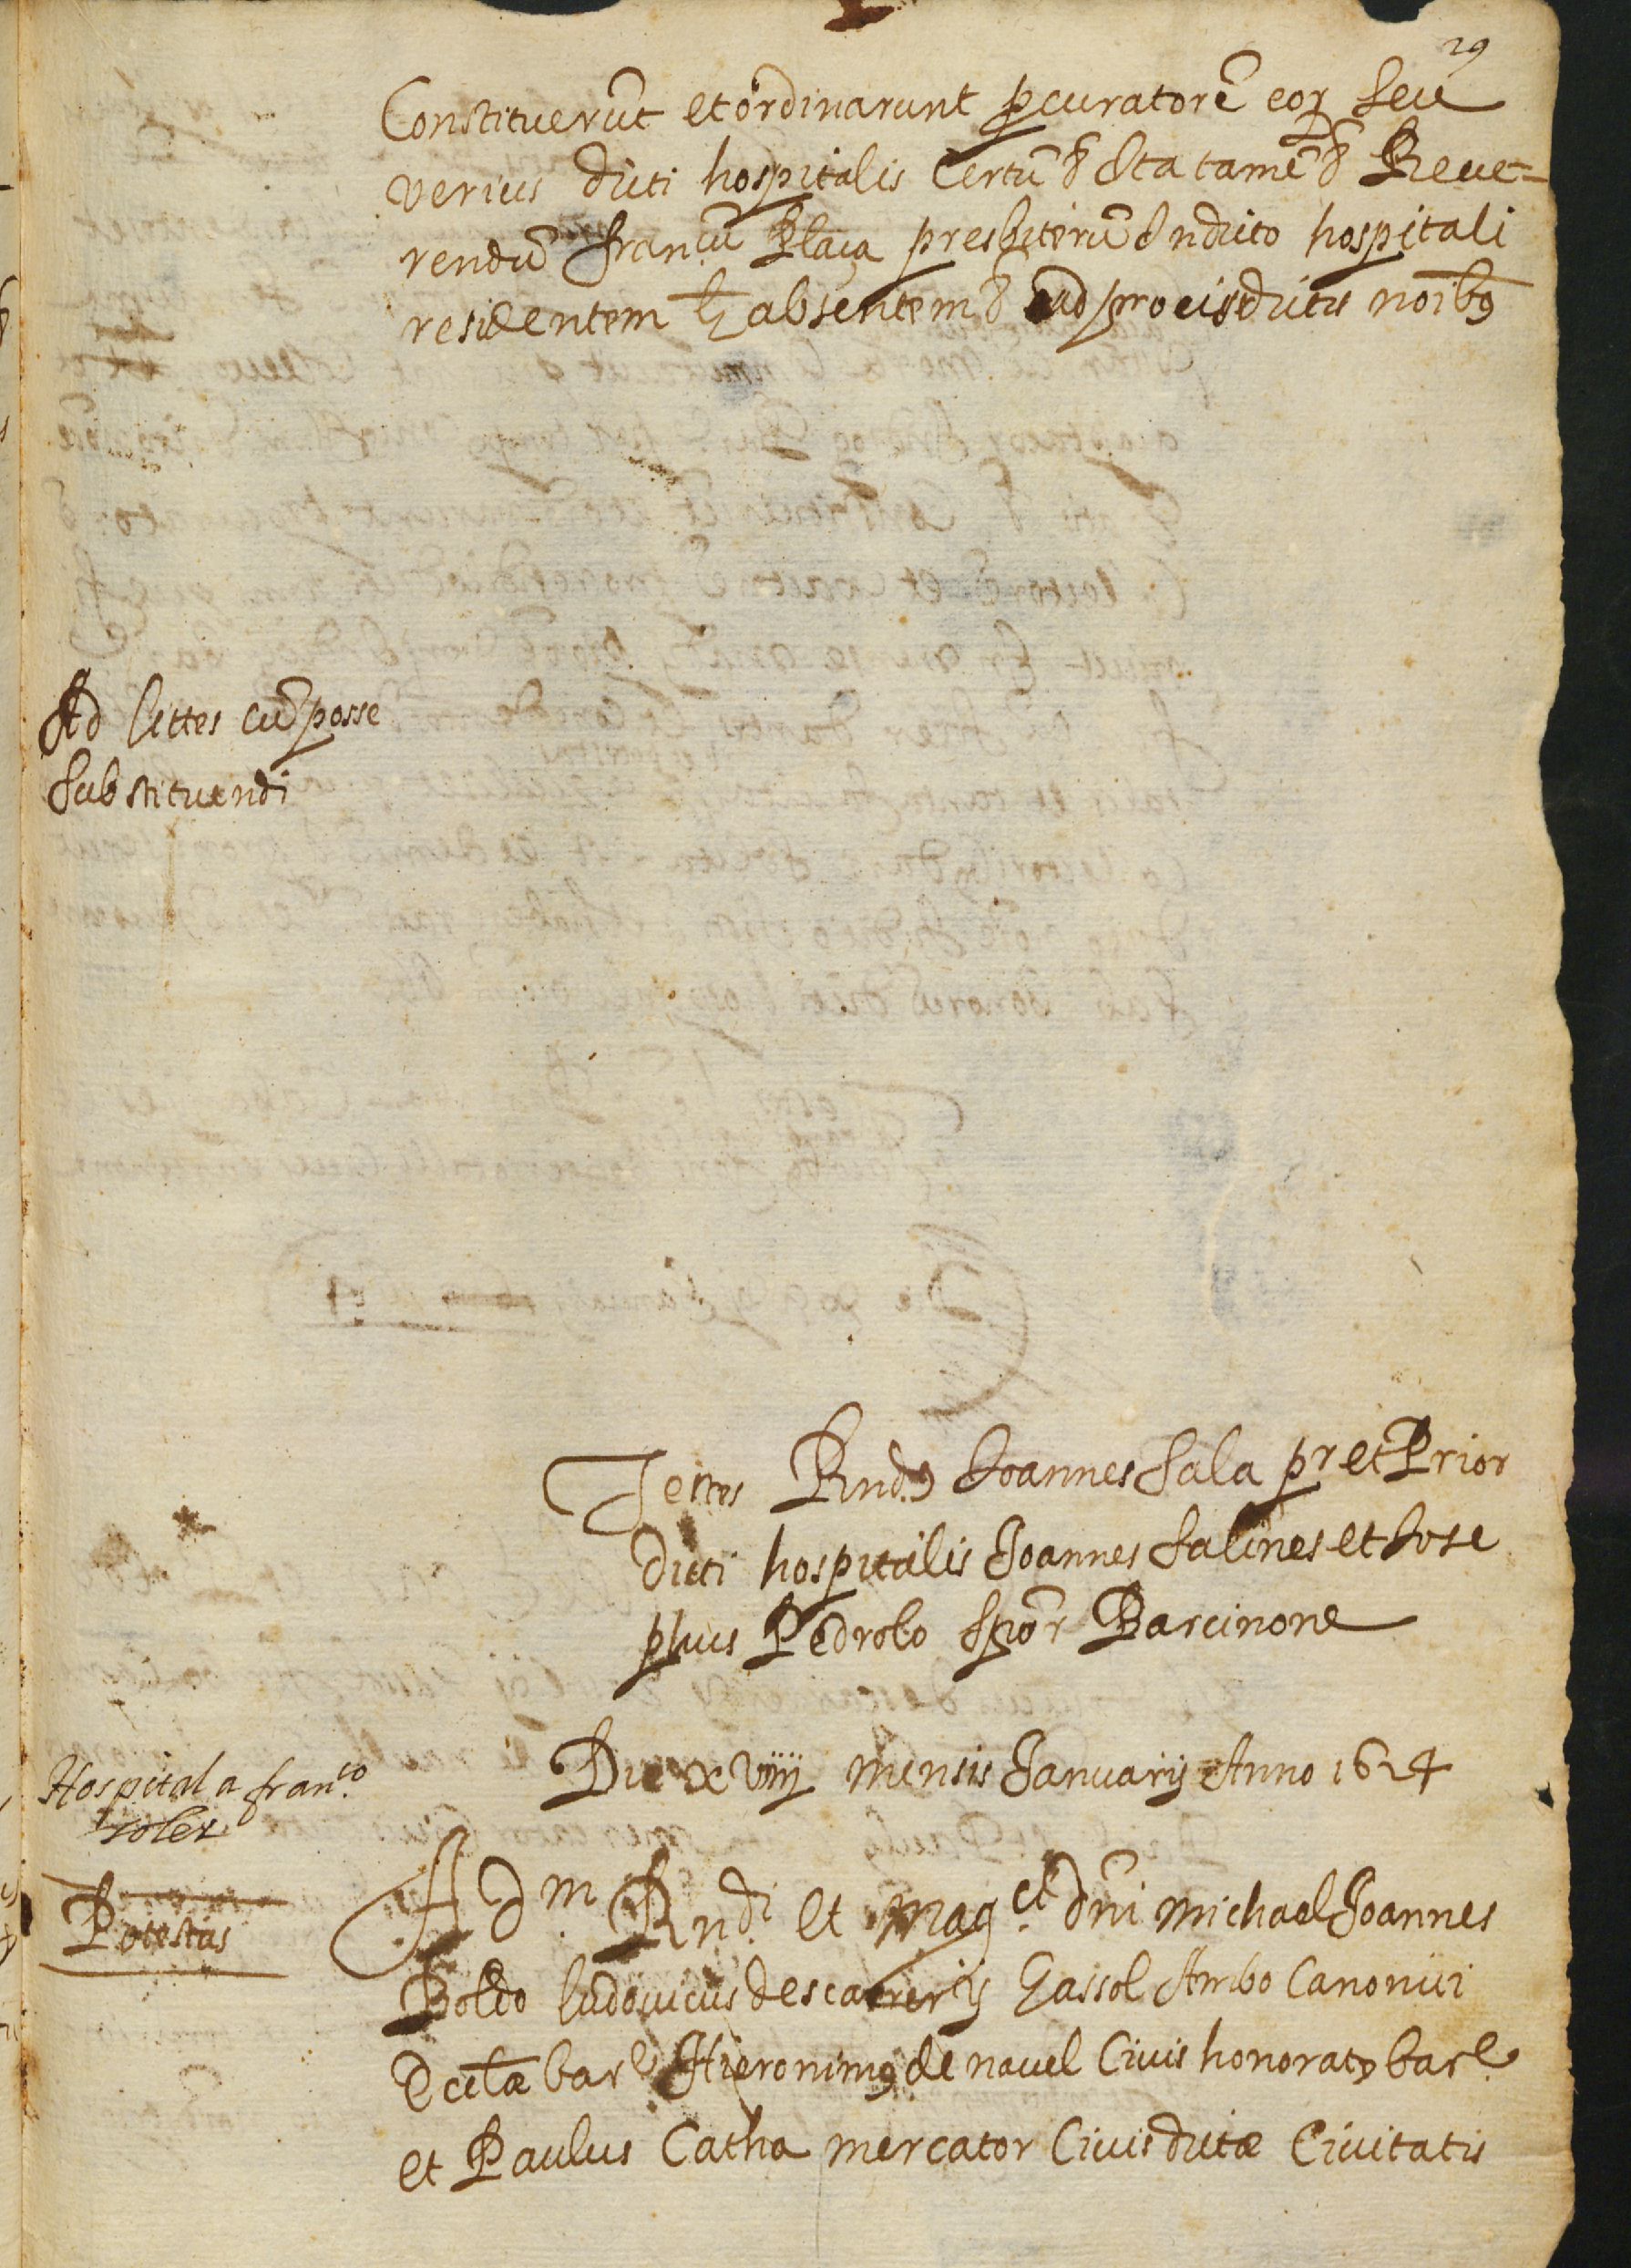 29
Constituerũt et ordinarunt p̱curatorẽ eoꝝ seu
verius dicti hospitalis Certũ & Ita tamẽ & Reue=
rendũ Franᶜᵘ Plaça presbiterũ Indicto hospitali
residentem absentem & Ad pro eis dictis noĩbꝰ
Ad littes cũ posse
Substituendi
Testes Rndꝰ Joannes Sala pr et Prior
dicti hospitalis Joannes Salines et Jose
phus Pedrolo Barcinone
Die xviiij mensis Januarij Anno 1624
Hospital a franᶜᵒ
soler
Potestas
Adm. Rndi. et Magᶜⁱ dñi Michael Joannes
Boldo ludouicus descarrerijs Gassol Ambo Canonici
barᵉ Hieronimꝰ de nauel Ciuis honoratꝰ barᵉ.
et Paulus Catha mercator Ciuis dictæ Ciuitatis